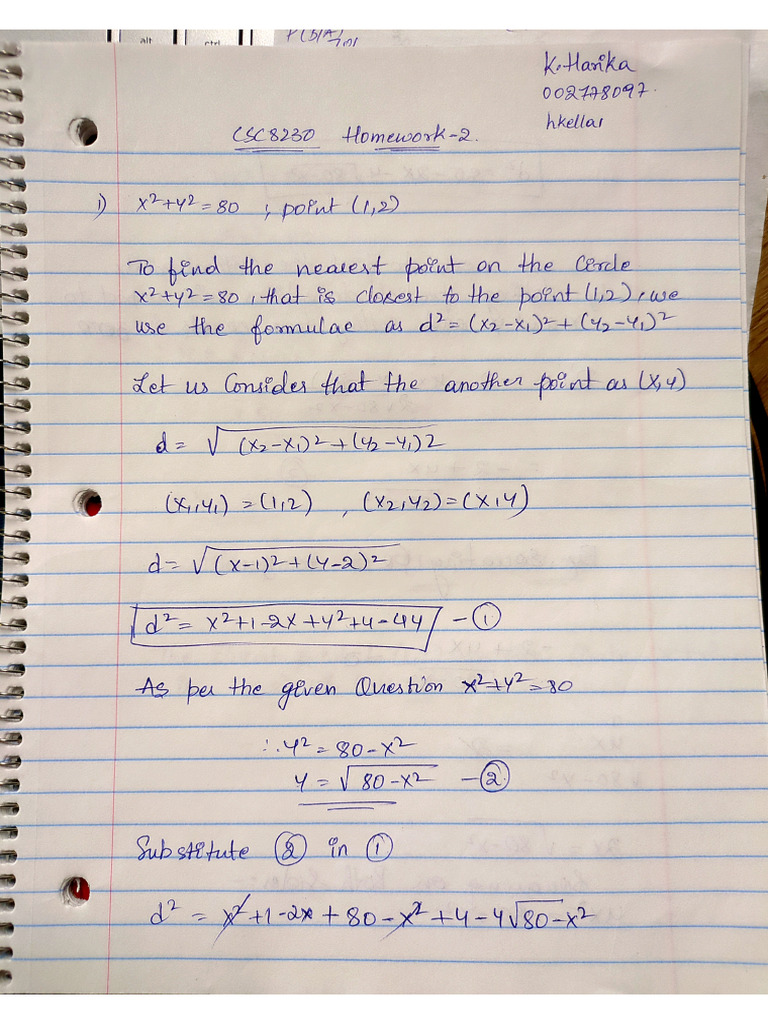 alt
ctrl
P(B/A)
K.Harika
002778097.
hkella1
CSC8230 Homework-2.
1) x²+y²=80 ; point (1,2)
To find the nearest point on the circle
x²+y²=80, that is closest to the point (1,2), we
use the formulae as d²=(x₂-x₁)²+(y₂-y₁)²
Let us Consider that the another point as (x,y)
d= √(x₂-x₁)²+(y₂-y₁)2
(x₁,y₁)=(1,2) , (x₂,y₂)=(x,y)
d=√(x-1)²+(y-2)²
d²= x²+1-2x+y²+4-4y -①
As per the given Question x²+y²=80
∴y²=80-x²
y=√80-x² -②
Substitute ② in ①
d² = x²+1-2x+80-x²+4-4√80-x²